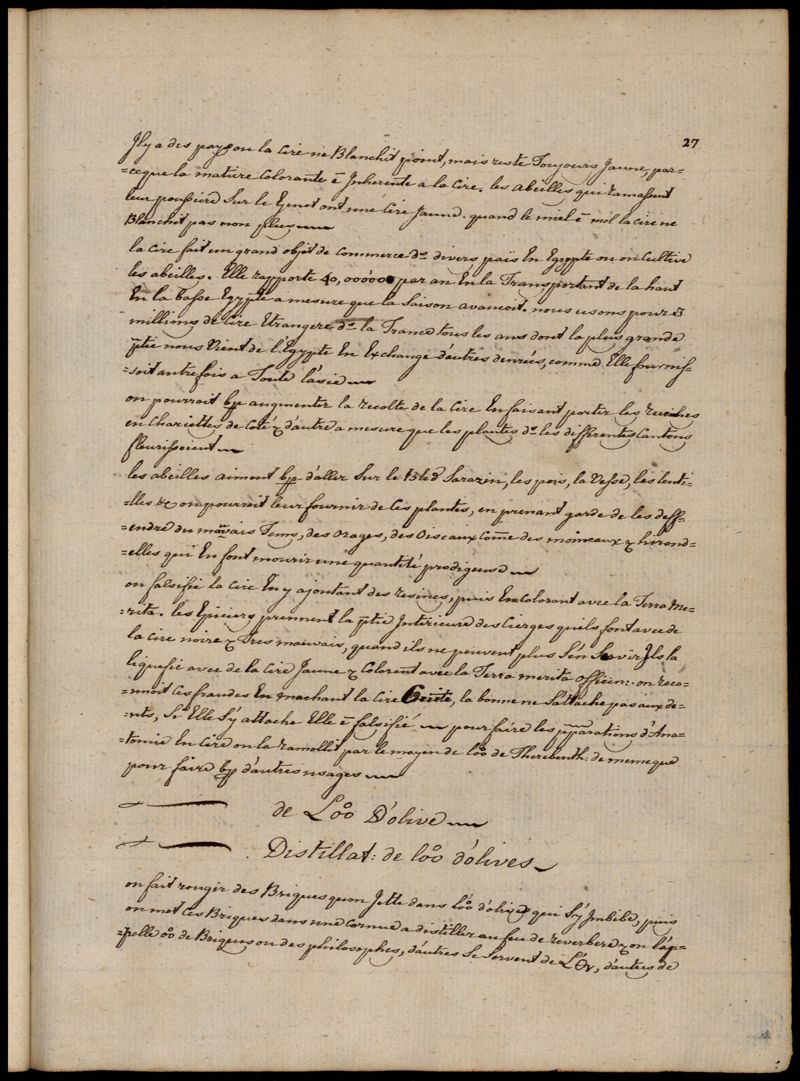 27
Il y a des pays ou la Cire ne Blanchit point, mais reste Toujours Jaune, par-
=ceque la matiere Colorante ē Inherente a la Cire. les abeilles qui ramassent
leur poussiere Sur le Genet ont une Cire Jaune. quand le miel ē mol la cire ne
Blanchit pas non plus
la Cire fait un grand objet de Commerce ds divers païs En Egypte ou on Cultive
les abeilles. Elle rapporte 40,00000 par an En la Transportant de la haut
En la Basse Egypte a mesure que la Saison avancoit. nous usons pour
millions de Cire Etrangere ds la France tous les ans dont la plus grande
ptie nous Vient de l'Egypte En Exchange d'autres denrées, comme Elle fournis-
=soit autrefois a Toute l'asie
on pourroit bp augmenter la recolte de la Cire En faisant porter les ruches
en Chariettes de Coté & d'autre a mesure que les plantes ds les differentes Cantons
fleurissoient
les abeilles aiment bp d'aller Sur le Bled Sarazin, les pois, la Vesse, les lenti-
=lles &c on pourroit leur fournir de Ces plantes, en prenant garde de les deff-
=endre du mauvais Tems, des orages, des Oiseaux Come des moineaux & hirond-
=elles qui En font mourir une quantité prodigeuse
on falsifie la Cire En y ajoutant des resines, puis En Colorant avec la Terra Me-
=rita. les Epiciers prennent la ptie Interieure des Cierges quils font avec de
la Cire noire & Tres mauvais, quand ils ne peuvent plus S'en Servir Ils la
liquefie avec de la Cire Jaune & Colorent avec la Terra merita officin: on reco-
=noit Ces fraudes En machant la Cire, la bonne ne S'attache pas aux de-
=nts, Si Elle S'y attache Elle ē falsifié pour faire les pparations d'Ana-
=tomie En Cire on la ramollit par le moyen de loo de Therebenth: de meme que
pour faire bp d'autres usages
de Loo D'olive
Distillat: de loo d'olives
on fait rougir des Briques quon Jette dans l'oo d'olives qui S'y Imbibe, puis
on met Ces Briques dans une Cornue a distiller au feu de reverbere & on l'ap-
=pelle oo de Briques ou des philosophes, d'autres Se Servent de L'Or, d'autres de